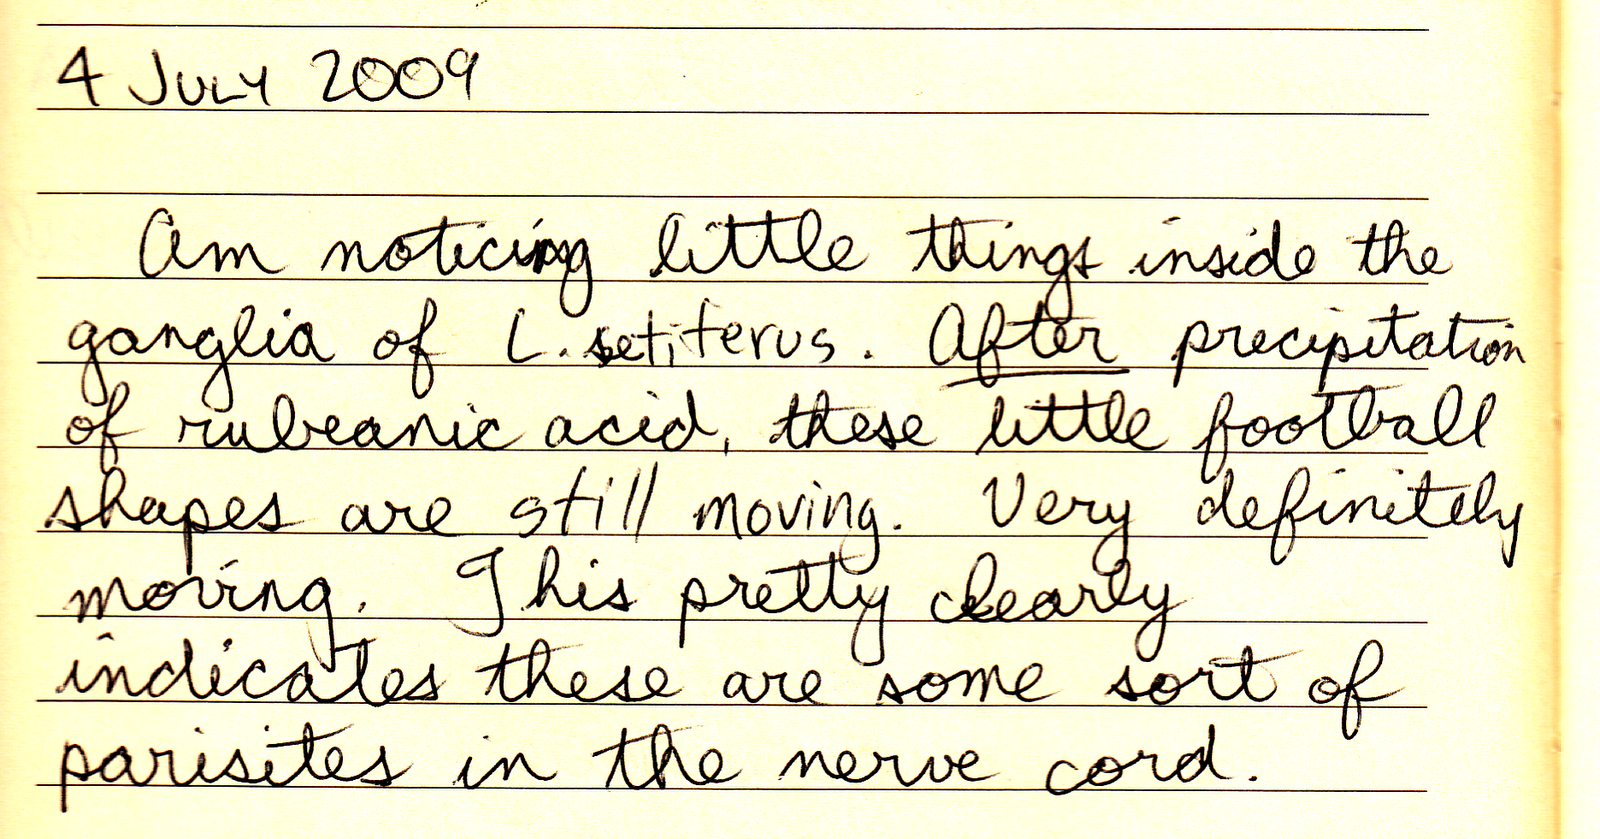 4 July 2009
Am noticing little things inside the
ganglia of L. setiferus. After precipitation
of rubeanic acid, these little football
shapes are still moving. Very definitely
moving. This pretty clearly
indicates these are some sort of
parisites in the nerve cord.